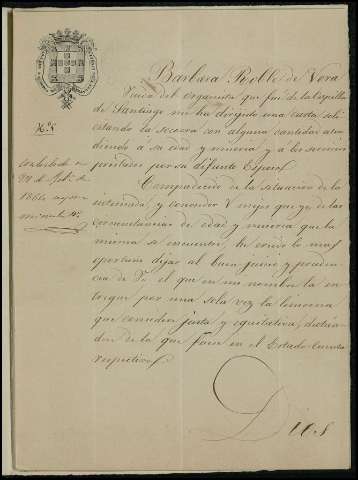 Bárbara Robles de Vera
Viuda del organista que fué de la Capilla
de Santiago me ha dirigido una carta soli
citando la socorra con alguna cantidad aten
diendo a su edad y miseria y a los servicios
prestados por su difunto Esposo.
Compadecido de la situacion de la
interesada, y conociendo V mejor que yo las
circunstancias de edad y miseria que la
misma se encuentra, he creido lo mas
oportuno dejar al buen juicio y pruden
cia de V. el que en mi nombre la en
tregue por una sola vez la limosna
que considere justa y equitativa, datan
dose de la que fuere en el Estado-Cuenta
respectivo.
Dios
Contestado en
de Feb.º de
1866